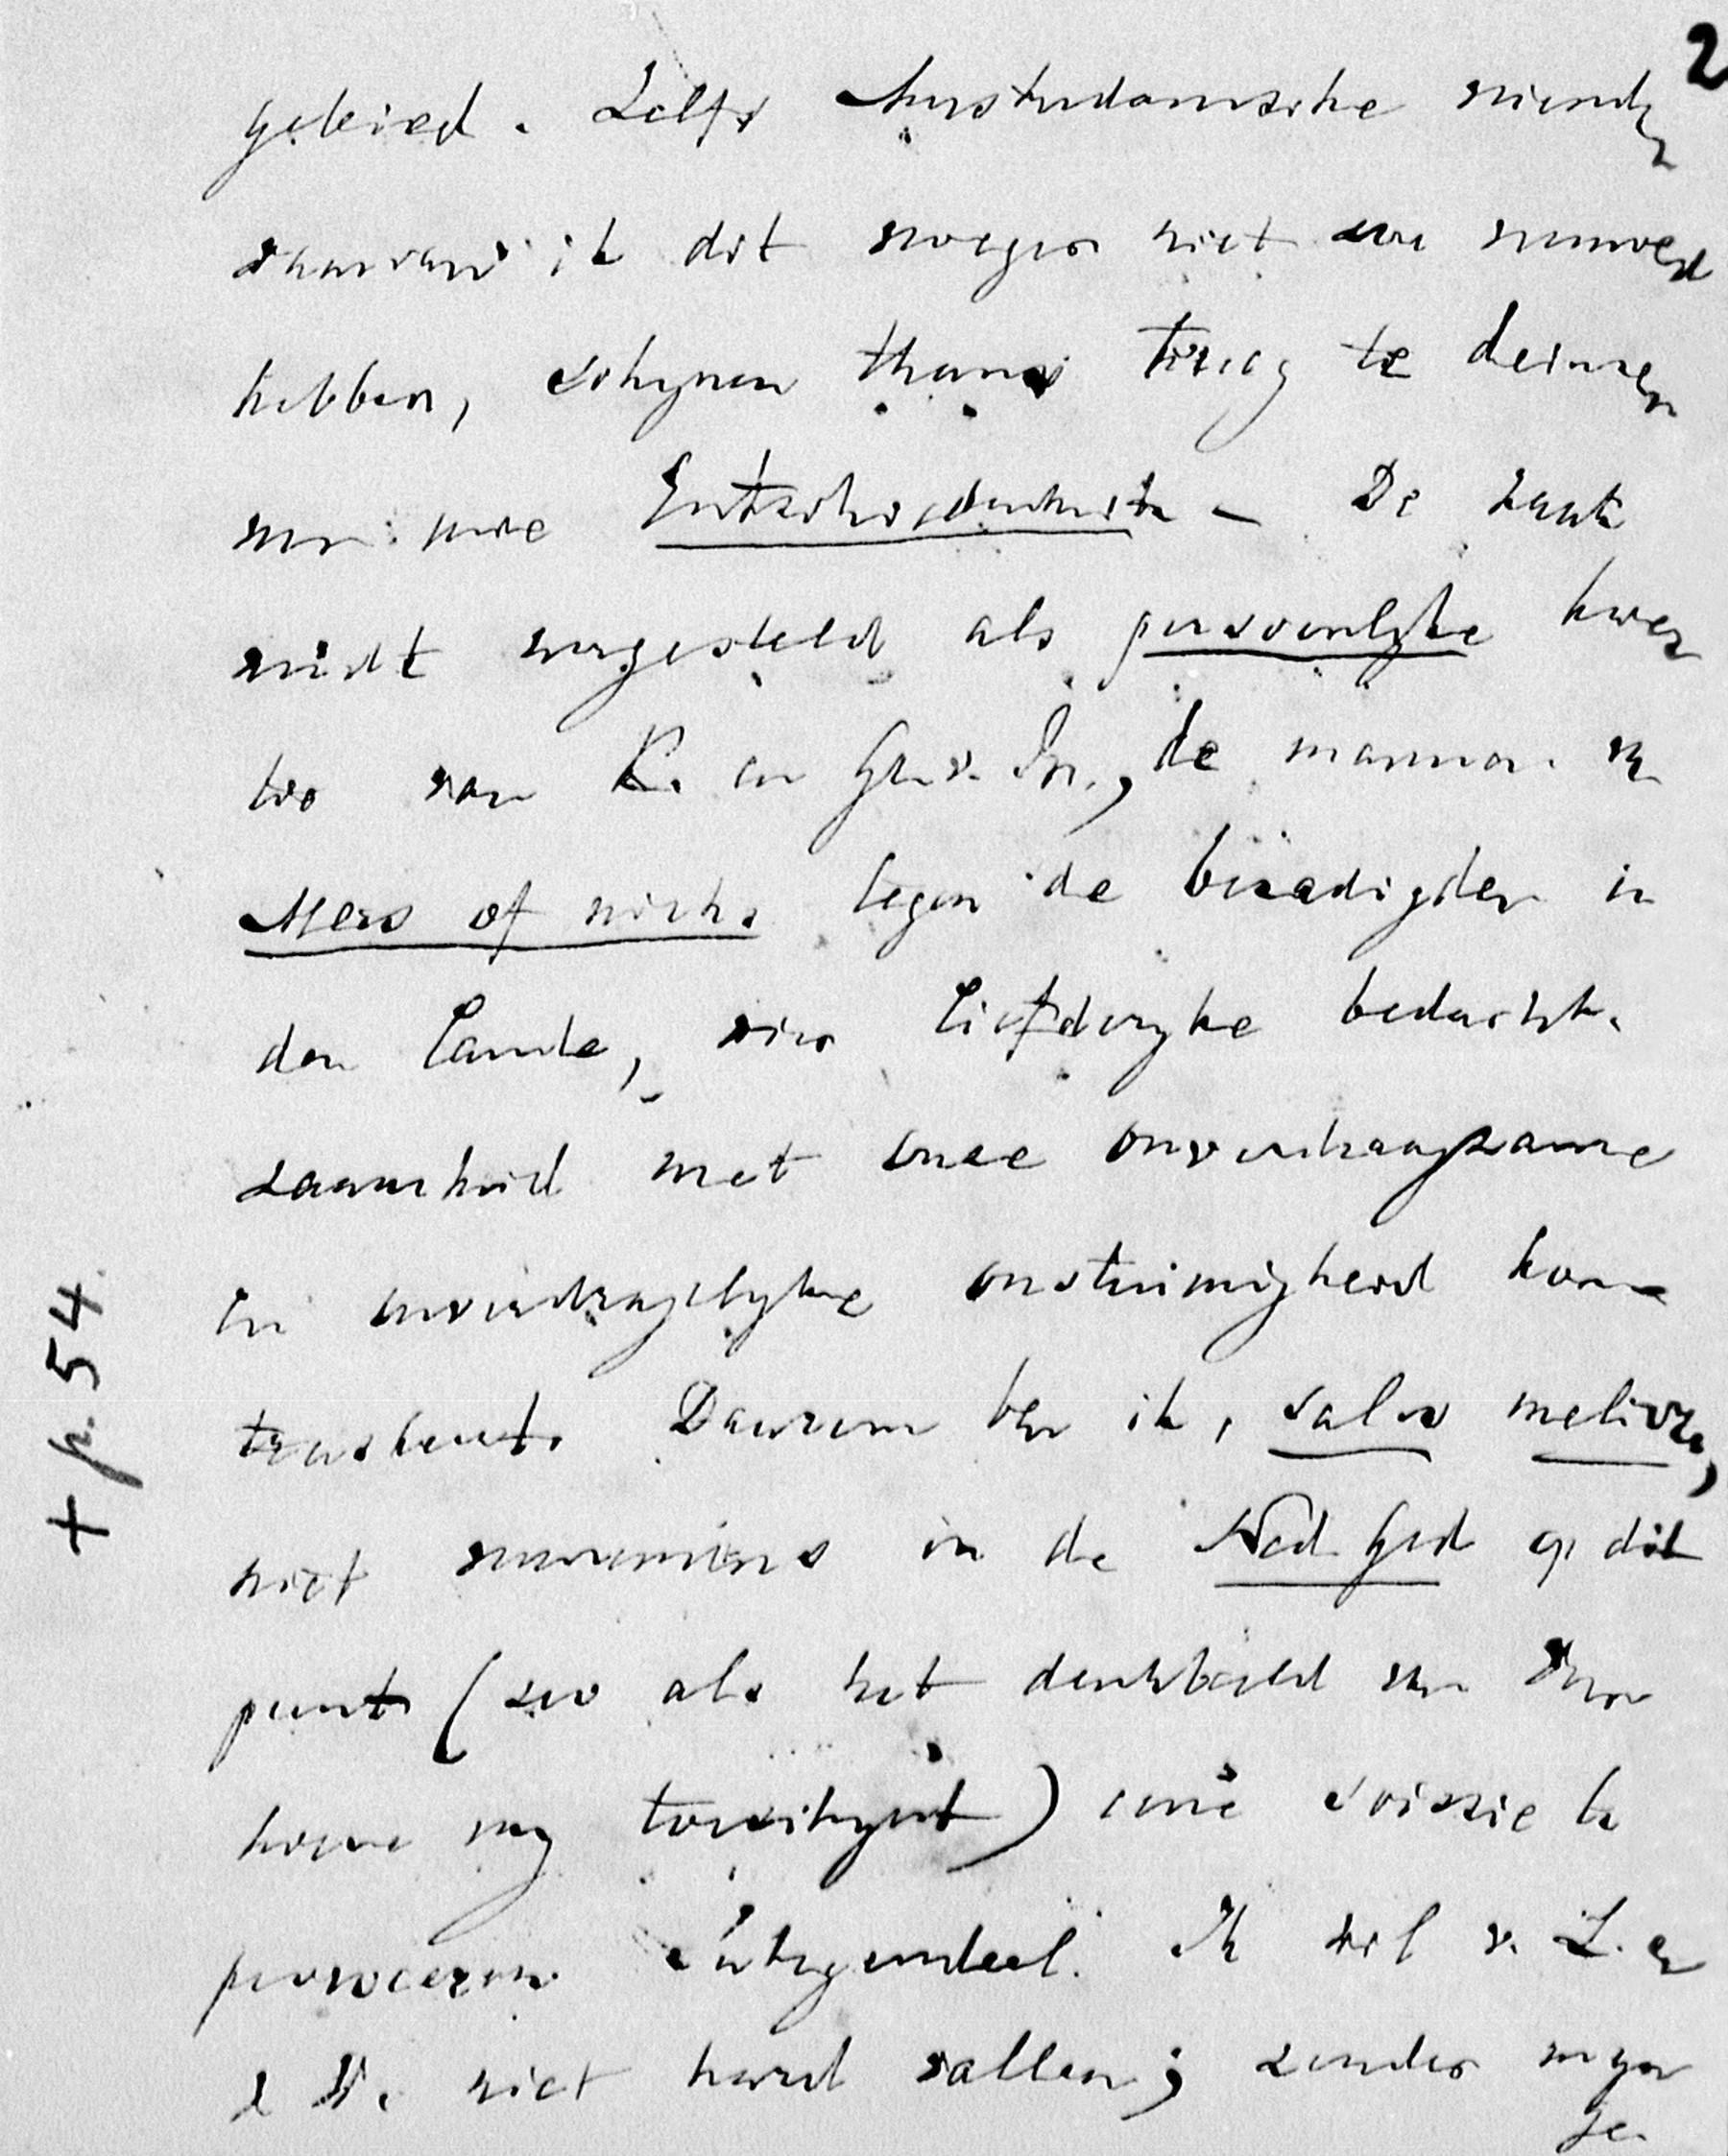 2
gebied. Zelfs Amsterdamsche vriend
waarvan ik dit vroeger niet zou vermoed
hebben, schynen thans terug te deinzen
voor uwe Entschiedenheit - De zaak
wordt voorgesteld als persoonlyke kwes
tie van K. en Gr. v. Pr., de mannen van
Alles of niets. tegen de bezadigden in
den Lande, wier liefderyke bedacht-
zaamheid met onze onverdraagzame
en onverdragelyke onstuimigheid kon-
trasteert. Daarom ben ik, salvo meliori,
niet voornemens in de Ned. Ged op dit
punt (zoo als het denkbeeld van Van
my toeschynt) eene scissie te
provoceren Integendeel. Ik wil v. L. en
d. niet hard vallen; zonder myn
ge-
+ p. 54.